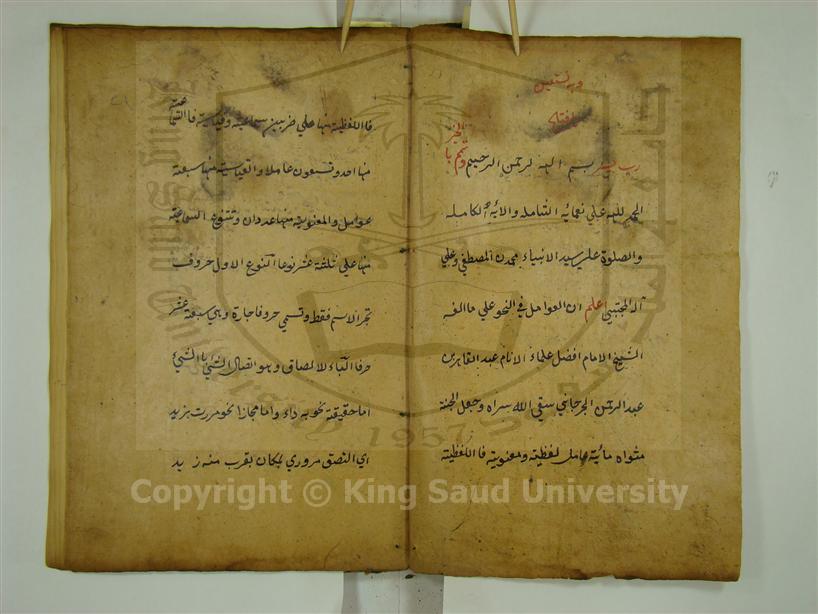 وبه نستعين
يا فتاح
رب يسر بسم الله الرحمن الرحيم وتمم بالخير
الحمد لله علي نعمائه الشامله والآئه الكامله
والصلوة علي سيد الانبياء محمدن المصطفي وعلي
آله المجتبي اعلم ان العوامل في النحو علي ما الفه
الشيخ الامام افضل علماء الانام عبد القاهر بن
عبد الرحمن الجرجاني سقي الله سراه وجعل الجنة
مثواه مائة عامل لفظية ومعنوية فا اللفظية
فا اللفظية منها علي ضربين سماعية وقياسية فا السماعية
منها احد وتسعون عاملا والقياسية منها سبعة
عوامل والمعنوية منها عددان وتتنوع السماعية
منها علي ثلثة عشر نوعا النوع الاول حروف
تجر الاسم فقط وتسمي حروفا جارة وهي سبعة عشر
حرفا الباء للالصاق وهو اتصال الشئ بالشئ
اما حقيقة نحو به داء واما مجازا نحو مررت بزيد
اي التصق مروري بمكان يقرب منه زيد
1957
Copyright © King Saud University